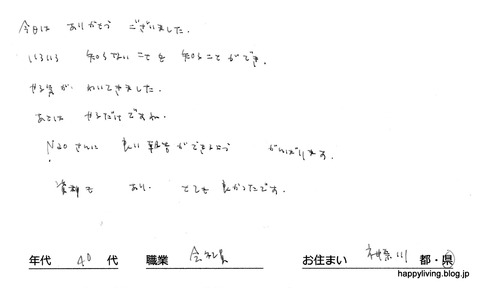 今日は ありがとう ございました.
いろいろ 知らないことを 知ることができ.
やる気が わいてきました.
あとは やるだけですね.
Naoさんに 良い報告ができるよう がんばります.
資料も あり. とても良かったです.
年代 40 代 職業 会社員 お住まい 神奈川 都・県
happyliving.blog.jp